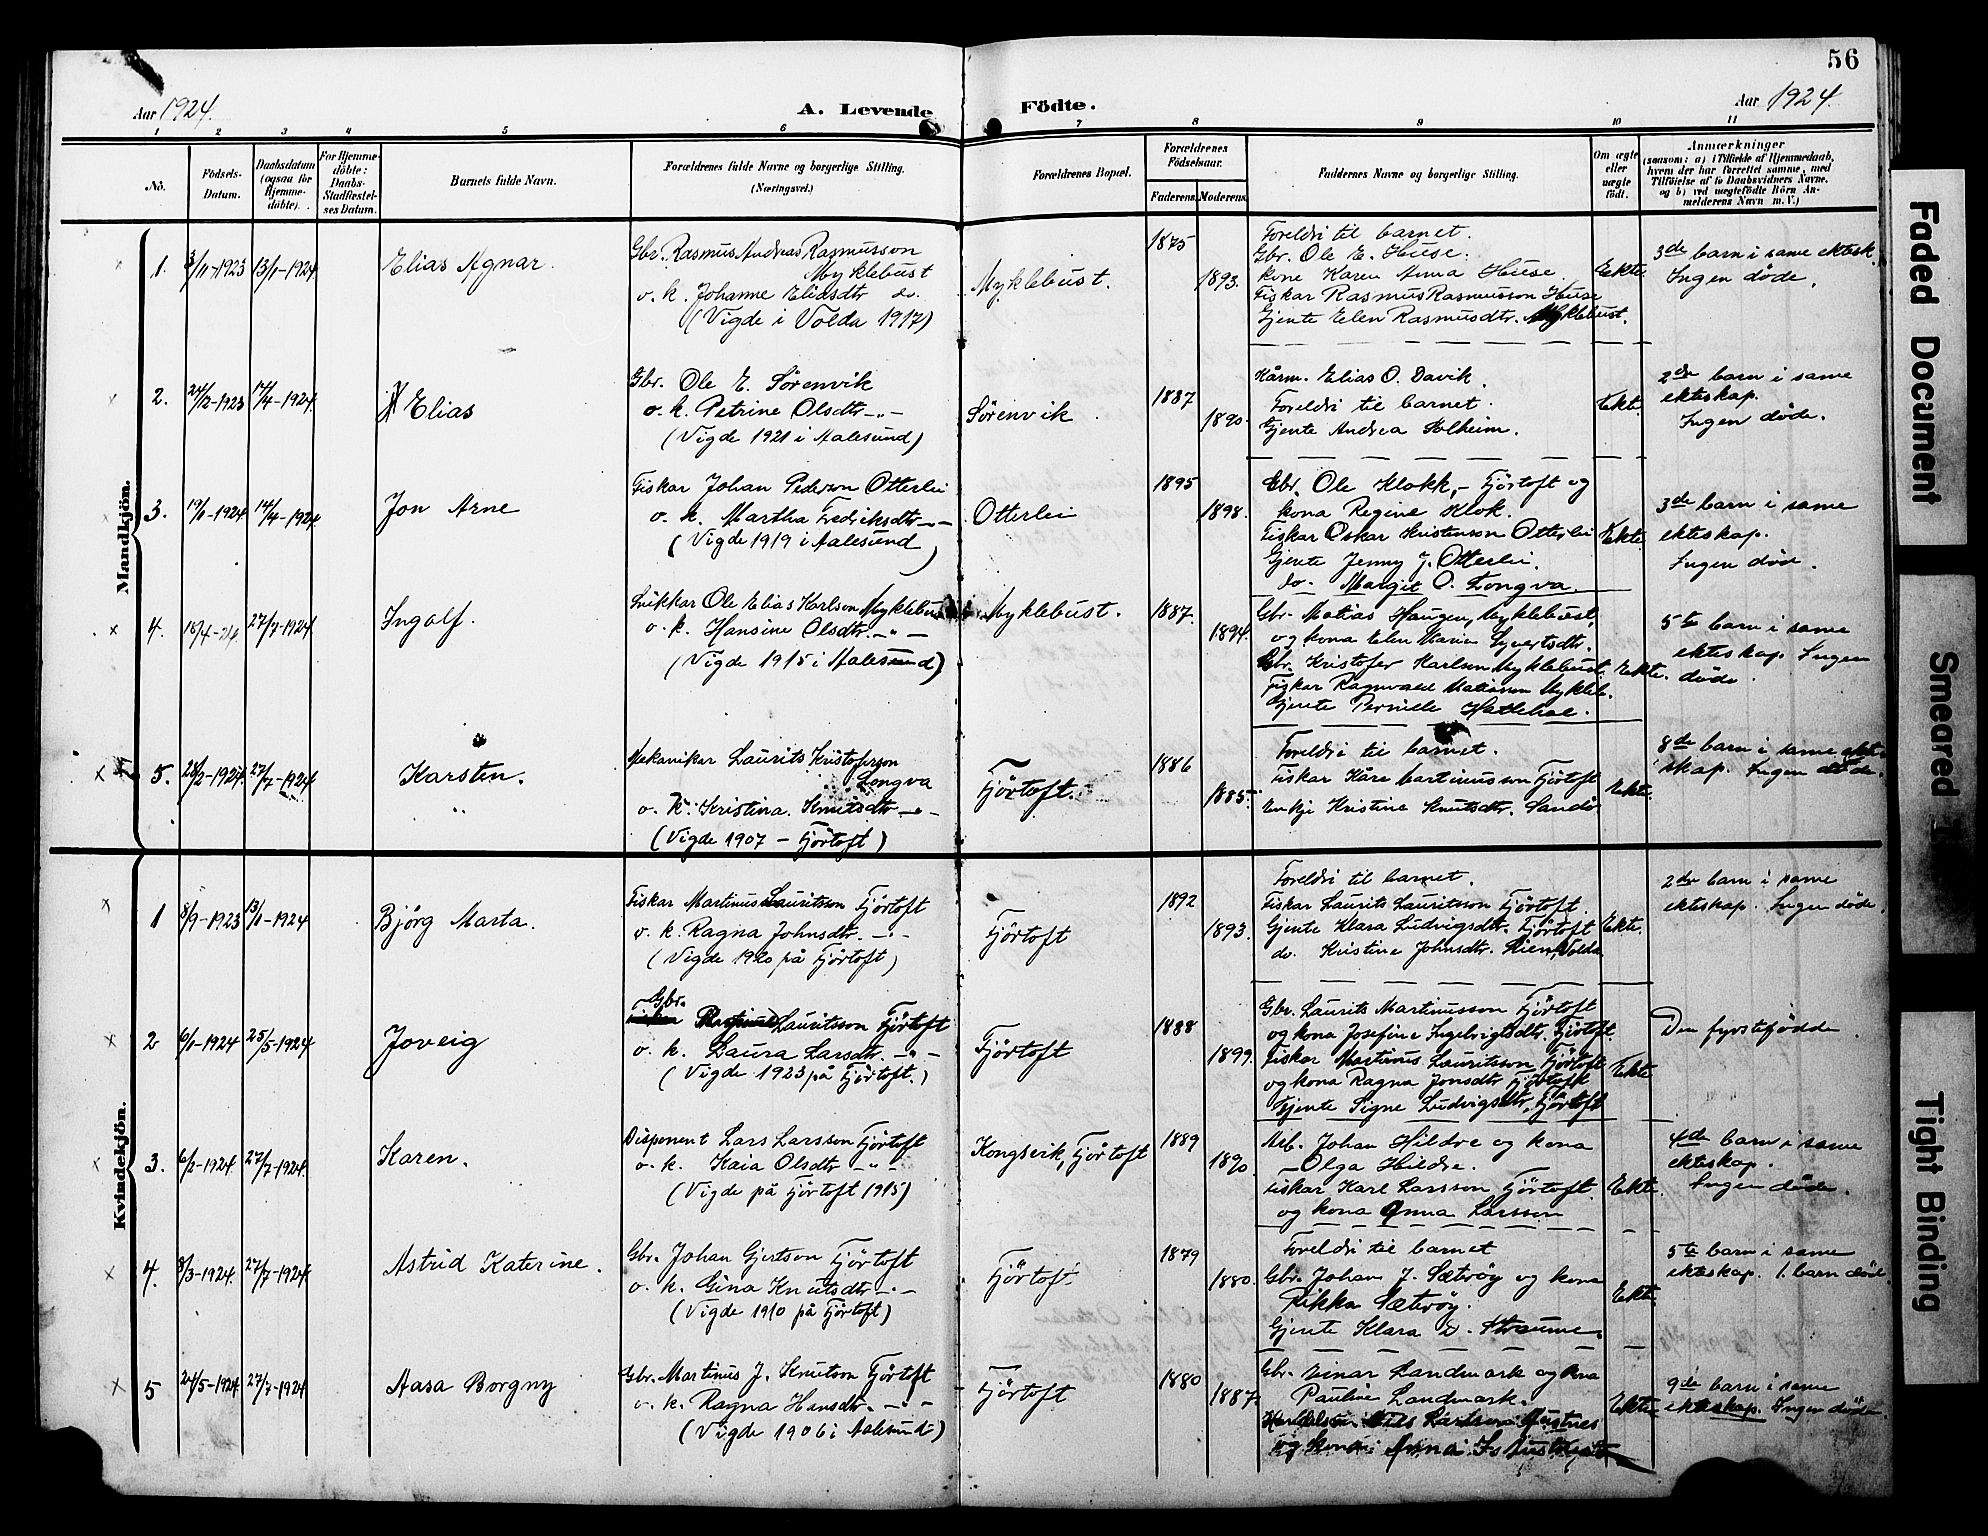 56
Aar 1924.
A. Levende Födte.
Aar 1924
1 2 3 4 5 6 7 8 9 10 11
No.
Födsels-
Datum.
Daabsdatum
(ogsaa for
Hjemme-
döbte).
For Hjemme-
döbte:
Daabs-
Stadfæstel-
ses Datum.
Barnets fulde Navn.
Forældrenes fulde Navne og borgerlige Stilling.
(Næringsvei.)
Forældrenes Bopæl.
Forældrenes
Födselsaar.
Faderens.
Moderens.
Faddernes Navne og borgerlige Stilling.
Om ægte
eller
uægte
født.
Anmærkninger
(saasom: a) i Tilfælde af Hjemmedaab,
hvem der har forrettet samme, med
Tilföielse af to Daabsvidners Navne,
og b) ved uægtefödte Börn An-
melderens Navn m. V.)
Mandkjön.
1. 3/11-1923 13/1-1924 Elias Agnar.
Gbr. Rasmus Andreas Rasmusson
Myklebust
o. k. Johanne Eliasdtr do.
(Vigde i Volda 1917)
Myklebust.
1875
1893.
Foreldri til barnet.
Gbr. Ole E. Huse.
kone Karen Anna Huse.
Fiskar Rasmus Rasmusson Huse
Gjente Elen Rasmusdtr. Myklebust.
Ekte.
3de barn i same ektesk.
Ingen døde.
2. 24/12-1923 17/4-1924 Elias
Gbr. Ole E. Sørenvik
o. k. Petrine Olsdtr -"-
(Vigde 1921 i Aalesund)
Sørenvik.
1887
1890.
Kårm. Elias O. Davik.
Foreldri til barnet.
Gjente Andrea Solheim.
Ekte.
2dre barn i same
ekteskap.
Ingen døde.
3. 19/1-1924 14/4-1924 Jon Arne
Fiskar Johan Pederson Otterlei
o. k. Martha Fredriksdtr -"-
(Vigde 1919 i Aalesund)
Otterlei
1895
1898.
Gbr. Ole Klokk, - Fjörtoft og
kona Regine Klok.
Fiskar Oskar Kristenson Otterlei
Gjente Jenny J. Otterlei.
do. Margit O. Longva.
Ekte.
3de barn i same
ekteskap.
Ingen døde.
4. 18/4-24 27/7-1924 Ingolf.
Snikkar Ole Elias Karlson Myklebust
o. k. Hansine Olsdtr. -"-
(Vigde 1915 i Aalesund)
Myklebust.
1887.
1894.
Gbr. Matias Haugen, Myklebust,
og kona Elen Marie Syvertsdtr.
Gbr. Kristofer Karlson Myklebust.
Fiskar Ragnvald Matiasson Mykleb.
Gjente Pernille Hattehol.
Ekte.
5te barn i same
ekteskap. Ingen
døde.
5. 28/2-1924. 27/7-1924 Karsten.
Mekanikar Laurits Kristoferson
Longva
o. k. Kristina Knutsdtr -"-
(Vigde 1907 - Fjörtoft)
Fjörtoft.
1886
1885.
Foreldri til barnet.
Fiskar Kåre Martinusson Fjörtoft
Enkje Kristine Knutsdtr. Sandö
Ekte.
8de barn i same ekte-
skap. Ingen døde.
Kvindekjön.
1 8/9-1923 13/1-1924 Bjørg Marta.
Fiskar Martinus Lauritsson Fjörtoft
o. k. Ragna Johnsdtr. -"-
(Vigde 1920 på Fjörtoft)
Fjörtoft
1892
1893.
Foreldri til barnet.
Fiskar Laurits Lauritsson Fjörtoft.
Gjente Klara Ludvigsdtr. Fjörtoft
do. Kristine Johnsdtr. Lien, Volda
Ekte.
2dre barn i same
ekteskap. Ingen døde.
2 6/1-1924 25/5-1924 Joveig
Gbr.
Rasmus Lauritsson Fjörtoft
o. k. Laura Larsdtr. -"-
(Vigde 1923 på Fjörtoft.)
Fjörtoft
1888
1899.
Gbr. Laurits Martinusson Fjörtoft
og kona Josefine Ingebrigtsdtr. Fjörtoft.
Fiskar Martinus Lauritsson Fjörtoft
og kona Ragna Jonsdtr Fjörtoft
Gjente Signe Ludvigsdtr, Fjörtoft
Ekte
Den fyrstefødde
3. 6/2-1924. 27/7-1924 Karen.
Disponent Lars Larsson Fjörtoft
o. k. Kaia Olsdtr -"-
(Vigde på Fjörtoft 1915)
Kongsvik, Fjörtoft
1889
1890.
Arb. Johan Hildre og kona
Olga Hildre.
Fiskar Karl Larsson Fjörtoft
og kona Anna Larsson
Ekte.
4de barn i same
ekteskap.
Ingen døde.
4. 8/3-1924. 27/7-1924 Astrid Katerine.
Gbr. Johan Gjertson Fjörtoft
o. k. Gina Knutsdtr -"-
(Vigde 1910 på Fjörtoft)
Fjörtoft
1879
1880.
Foreldri til barnet
Gbr. Johan J. Sætrøy og kona
Rikka Sætrøy.
Gjente Klara D. Straume.
Ekte.
5te barn i same
ekteskap. 1. barn død.
5 24/5-1924. 27/7-1924 Aasa Borgny
Gbr. Martinus J. Knutson Fjörtoft
o. k. Ragna Hansdtr. -"-
(Vigde 1906 i Aalesund)
Fjörtoft
1880
1887.
Gbr. Einar Landmark og kona
Pauline Landmark.
og kona Anna
Ekte
9de barn i same
ekteskap. Ingen døde.
Faded Document
Smeared
Tight Binding